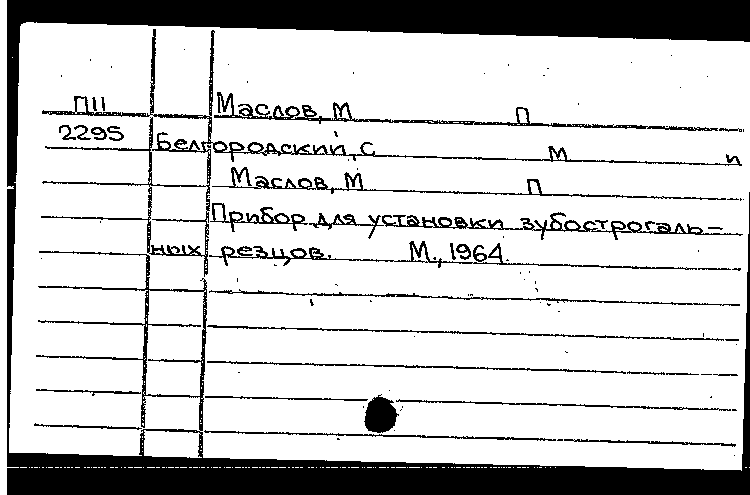 ПШ Маслов, М П
2295 Белгородский, С М и
Маслов, М П
Прибор для установки зубострогаль-
ных резцов. М., 1964.